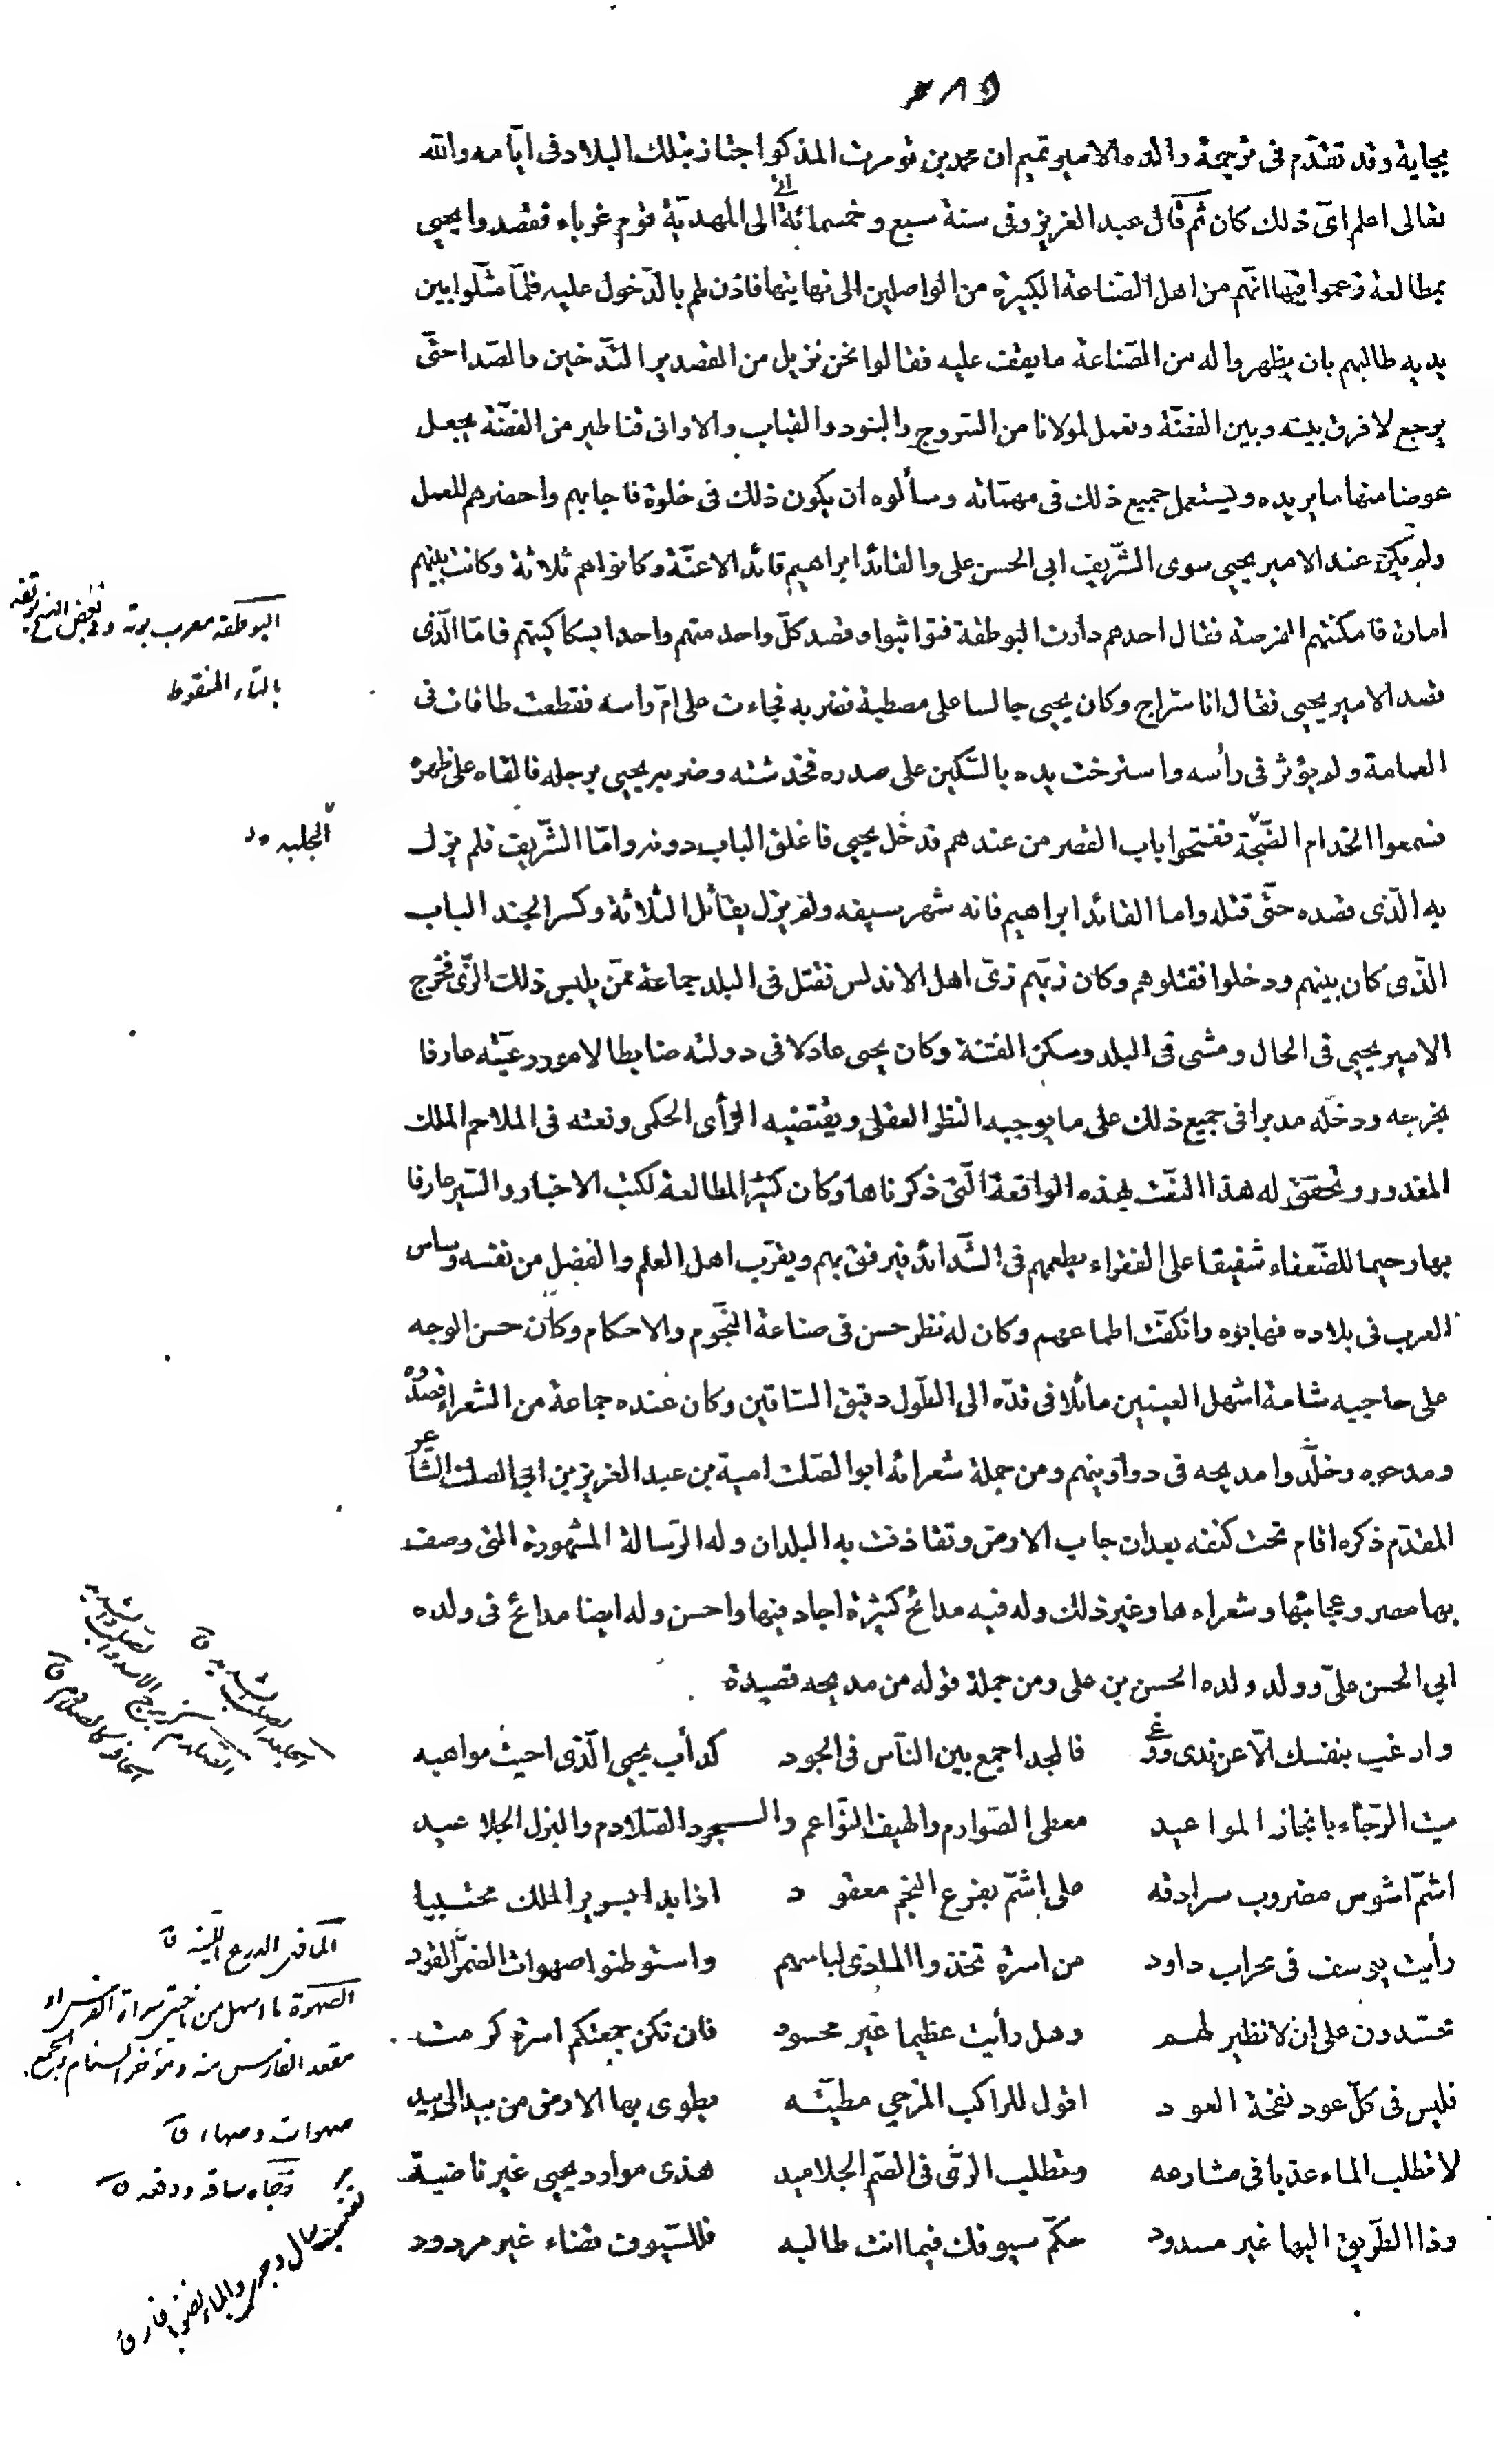 ٢٨٥
بجاية وقد تقدّم فى ترجمة والده الامير تميم ان محمد بن تومرت المذكو اجتاز بتلك البلاد فى ايّامه والله
تعالى اعلم اىّ ذلك كان ثم قال عبد العزيز وفى سنة سبع وخمسمائة اتى الى المهديّة قوم غرباء فقصدوا يحيى
بمطالعة زعموا فيها انّهم من اهل الصّناعة الكبيرة من الواصلين الى نهايتها فاذن لهم بالدّخول عليه فلمّا مثلوا بين
يديه طالبهم بان يظهروا له من الصّناعة ما يقف عليه فقالوا نحن نزيل من القصدير التّدخين والصّدا حتّى
يرجع لا فرق بينه وبين الفضّة ونعمل لمولانا من السّروج والبنود والقباب والاوانى قناطير من الفضّة يجعل
عوضا منها ما يريده ويستعمل جميع ذلك فى مهمّاته وسألوه ان يكون ذلك فى خلوة فاجابهم واحضرهم للعمل
ولم يكن عند الامير يحيى سوى الشّريف ابى الحسن على والقائد ابراهيم قائد الاعنّة وكانوا هم ثلاثة وكانت بينهم
امارة فامكنتهم الفرصة فقال احدهم دارت البوطقة فتواثبوا وقصد كلّ واحد منهم واحدا بسكاكينهم فامّا الّذى
قصد الامير يحيى فقال انا سرّاج وكان يحيى جالسا على مصطبة فضربه فجاءت على امّ راسه فقطعت طاقات فى
العمامة ولم يؤثر فى رأسه واسترخت يده بالسّكين على صدره فخدشته وضربه يحيى برجله فالقاه على ظهره
فسمعوا الخدام الضّجّة ففتحوا باب القصر من عندهم فدخل يحيى فاغلق الباب دونه وامّا الشّريف فلم يزل
به الّذى قصده حتّى قتله واما القائد ابراهيم فانه شهر سيفه ولم يزل يقاتل الثلاثة وكسر الجند الباب
الّذى كان بينهم ودخلوا فقتلوهم وكان زيّهم زىّ اهل الاندلس فقتل فى البلد جماعة ممّن يلبس ذلك الزّى فخرج
الامير يحيى فى الحال ومشى فى البلد وسكن الفتنة وكان يحيى عادلا فى دولته ضابطا لامور رعيّته عارفا
بخرجه ودخله مدبرا فى جميع ذلك على ما يوجبه النظر العقلى ويقتضيه الرّأى الحكمى ونعته فى الملاحم الملك
المغدور وتحقق له هذا النعت بهذه الواقعة الّتى ذكرناها وكان كثير المطالعة لكتب الاخبار والسّير عارفا
بها رحيما للضّعفاء شفيقا على الفقراء يطعمهم فى الشّدائد فيرفق بهم ويقرّب اهل العلم والفضل من نفسه وساس
العرب فى بلاده فهابوه وانكفّت اطماعهم وكان له نظر حسن فى صناعة النّجوم والاحكام وكان حسن الوجه
على حاجبه شامة اشهل العينين مائلا فى قدّه الى الطّول دقيق السّاقين وكان عنده جماعة من الشعراء قصدوه
ومدحوه وخلّدوا مديحه فى دواوينهم ومن جملة شعرائه ابو الصّلت امية بن عبد العزيز بن ابى الصلت الشّاعر
المقدّم ذكره اقام تحت كنفه بعد ان جاب الارض وتقاذفت به البلدان وله الرّسالة المشهورة التى وصف
بها مصر وعجائبها وشعراءها وغير ذلك وله فيه مدائح كثيرة اجاد فيها واحسن وله ايضا مدائح فى ولده
ابى الحسن علىّ وولد ولده الحسن بن على ومن جملة قوله من مديحه قصيدة
وارغب بنفسك الّا عن ندى ووغى فالمجد اجمع بين النّاس فى الجود كدأب يحيى الّذى احيت مواهبه
ميت الرّجاء بانجاز المواعيد معطى الصّوارم والهيف النّواعم والجرد الصّلادم والبزل الجلاعيد
اشمّ اشوس مضروب سرادقه على اشمّ بفرع النّجم معقود اذا بدا بسرير الملك محتبيا
رأيت يوسف فى محراب داود من اسرة تخذوا الماذى لباسهم واستوطنوا صهوات الضمّر القود
محسّدون على ان لا نظير لهم وهل رأيت عظيما غير محسود فان تكن جمعتكم اسرة كرمت
فليس فى كلّ عود نفحة العود اقول للراكب المزجى مطيّته يطوى بها الارض من بيد الى بيد
لا تطلب الماء عذبا فى مشارعه وتطلب الرّى فى الصّم الجلاميد هذى موارد يحيى غير ناضبة
وذا الطّريق اليها غير مسدود حكّم سيوفك فيما انت طالبه فللسّيوف قضاء غير مردود
البوطقه معرب بوته وفى بعض النسخ بوتقه
بالتاء المنقوط
الجلبه
الماذى الدرع اللينه ق
مقعد الفارس منه ومؤخر السنام والجمع
صهوات وصهاء ق